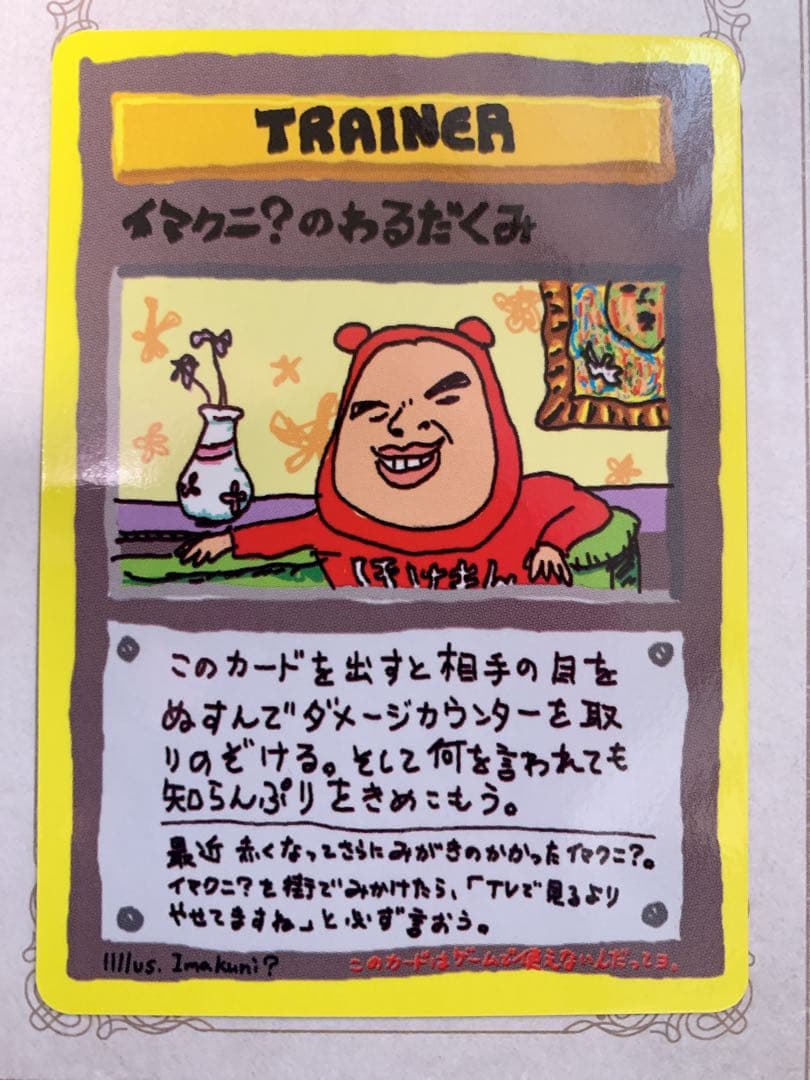 TRAINER
イマクニ?のわるだくみ
ぽけもん
このカードを出すと相手の目を
ぬすんでダメージカウンターを取
りのぞける。そして何を言われても
知らんぷりをきめこもう。
最近赤くなってさらにみがきのかかったイマクニ?。
イマクニ?を街でみかけたら、「TVで見るより
やせてますね」と必ず言おう。
Illus. Imakuni?
このカードはゲームで使えないんだってヨ。